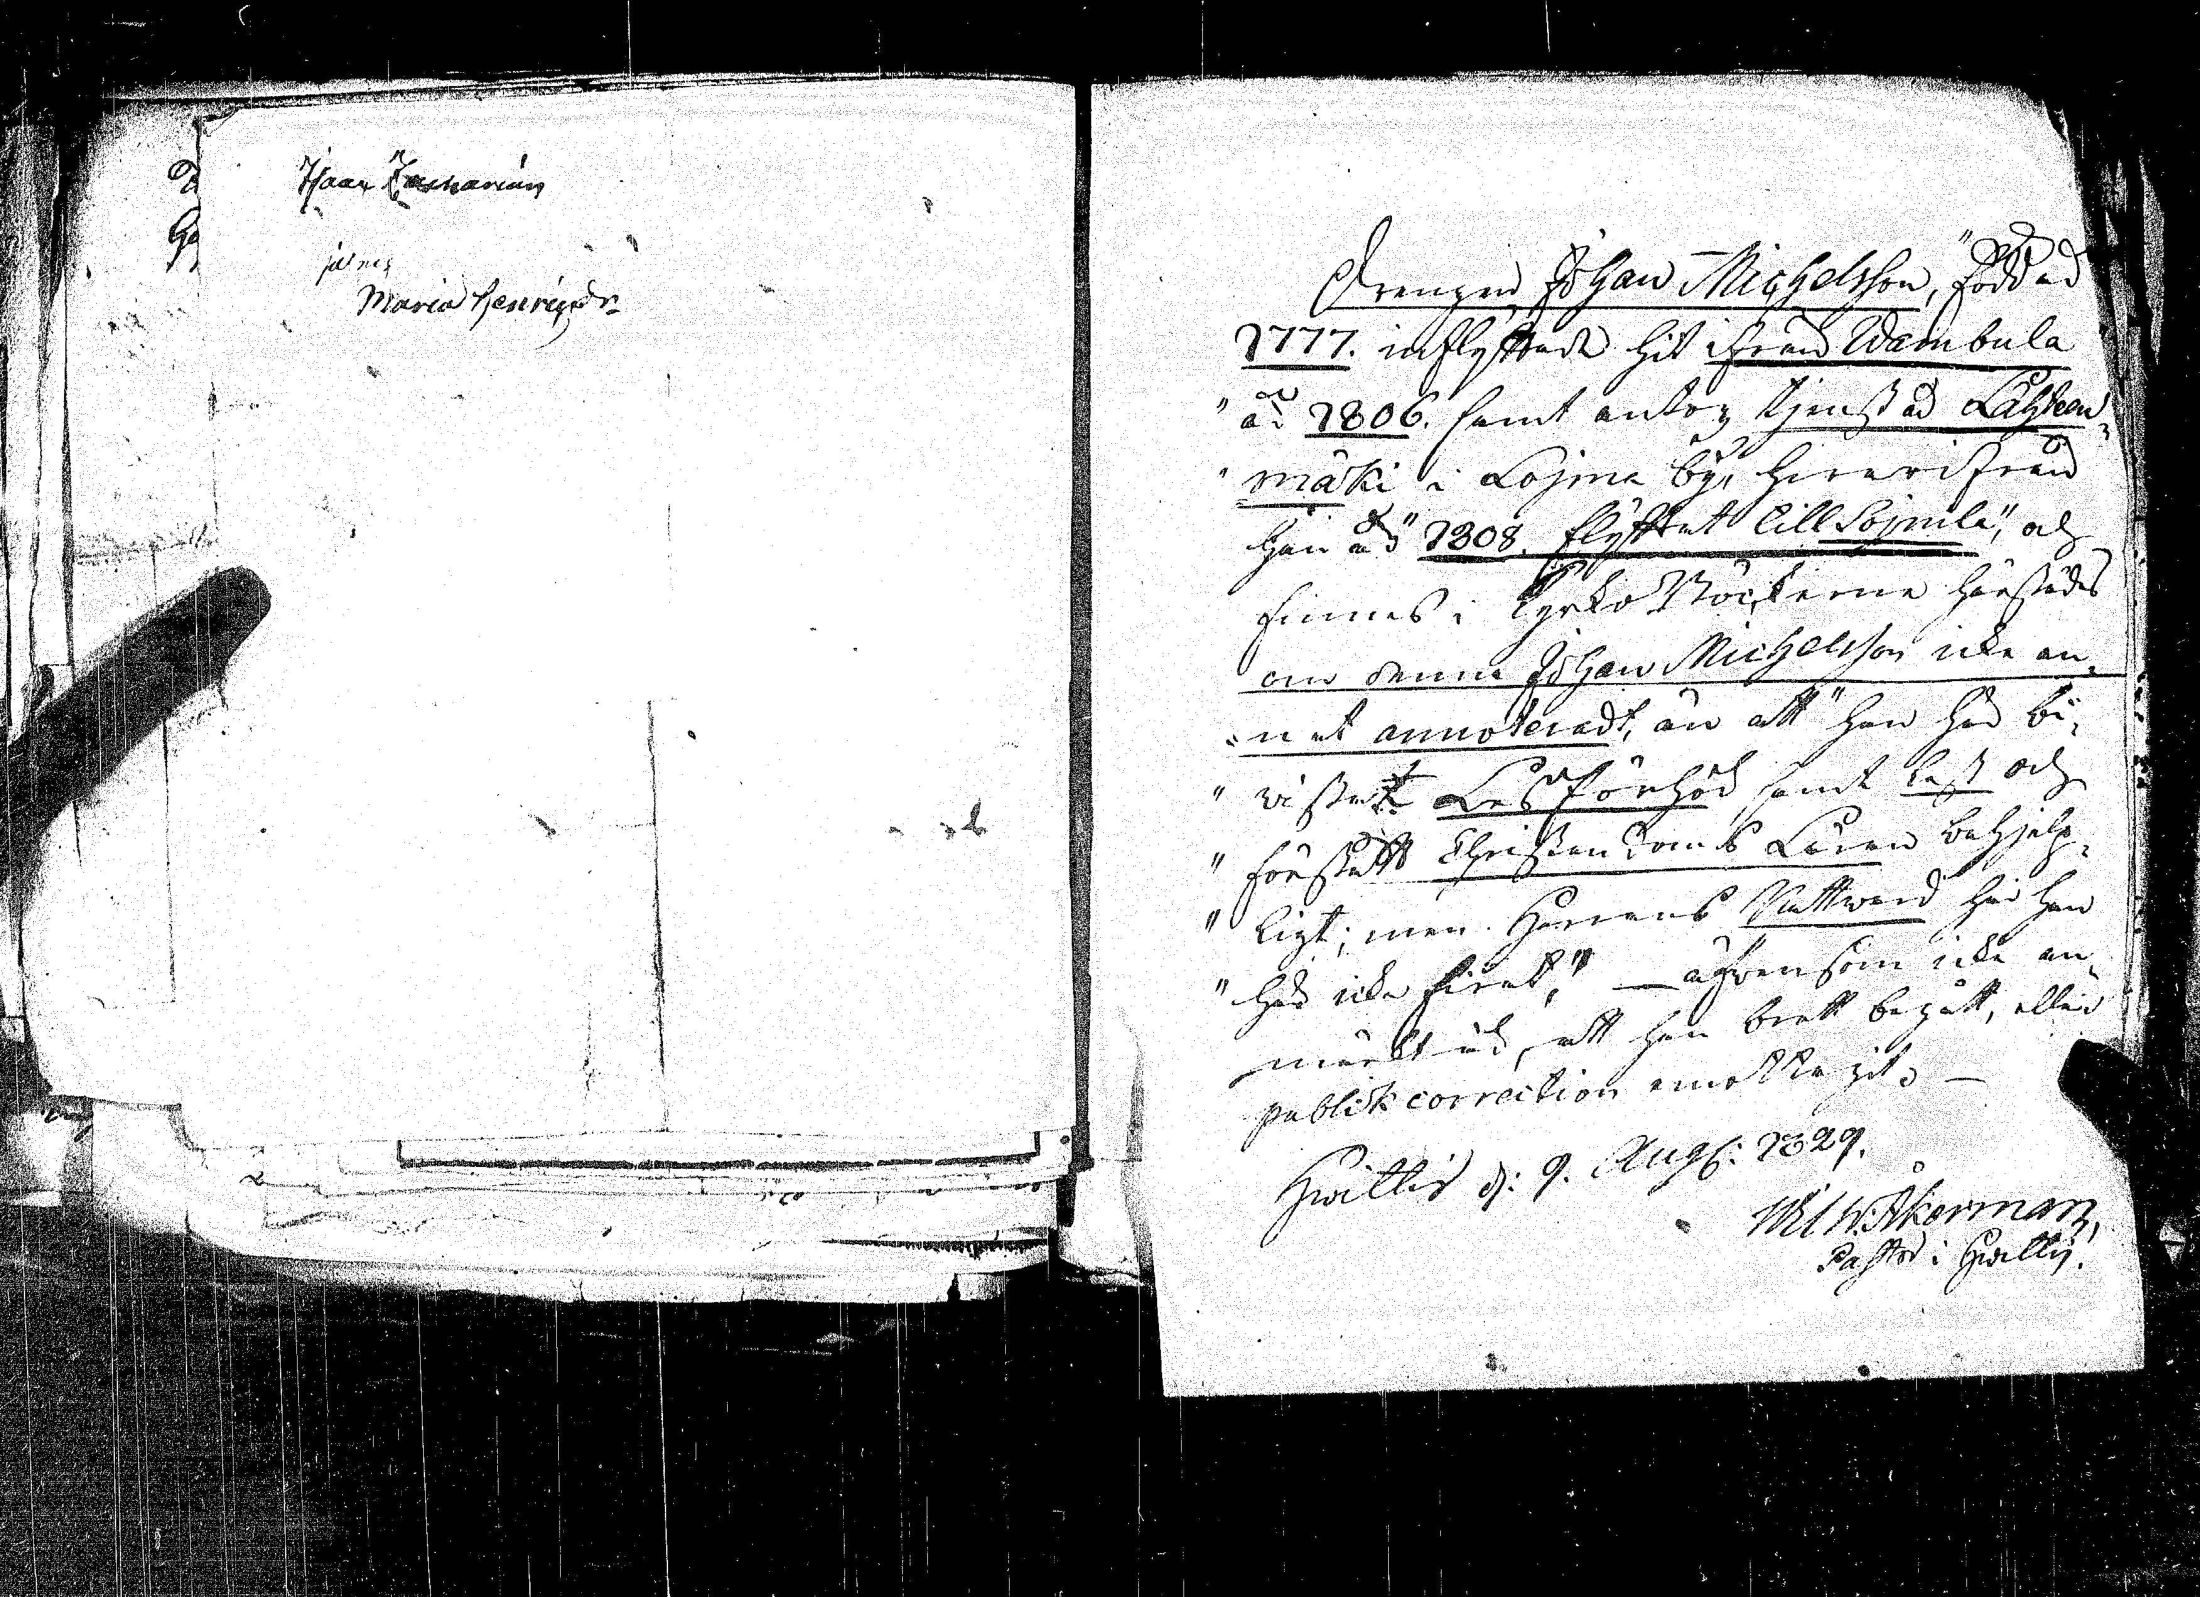 Isaac Zacharias
Maria Henricsdr
Drengen Johan Michelsson, "född
1777. inflyttade hit ifrån Wambula
" år 1806. samt antog tjenst å Lähteen-
" mäki i Lojma by, hvarifrån
han år" 1808. flyttat till Sojnila", och
finnes i Kyrko Böckerne härstädes
om denna Johan Michelsson icke an-
nat annoteradt, än att "han här bi-
" vistat Läsförhör samt läst och
" förstått Christendoms Läran behjelp-
" ligt; men Herrans Nattvard har han
" här icke firat," — äfvensom icke an-
märkt är, att han brott begått, eller
publik correction emottagit. —
Hvittis d: 9. Aug: 1829.
Åkerman,
Pastor i Hvittis.